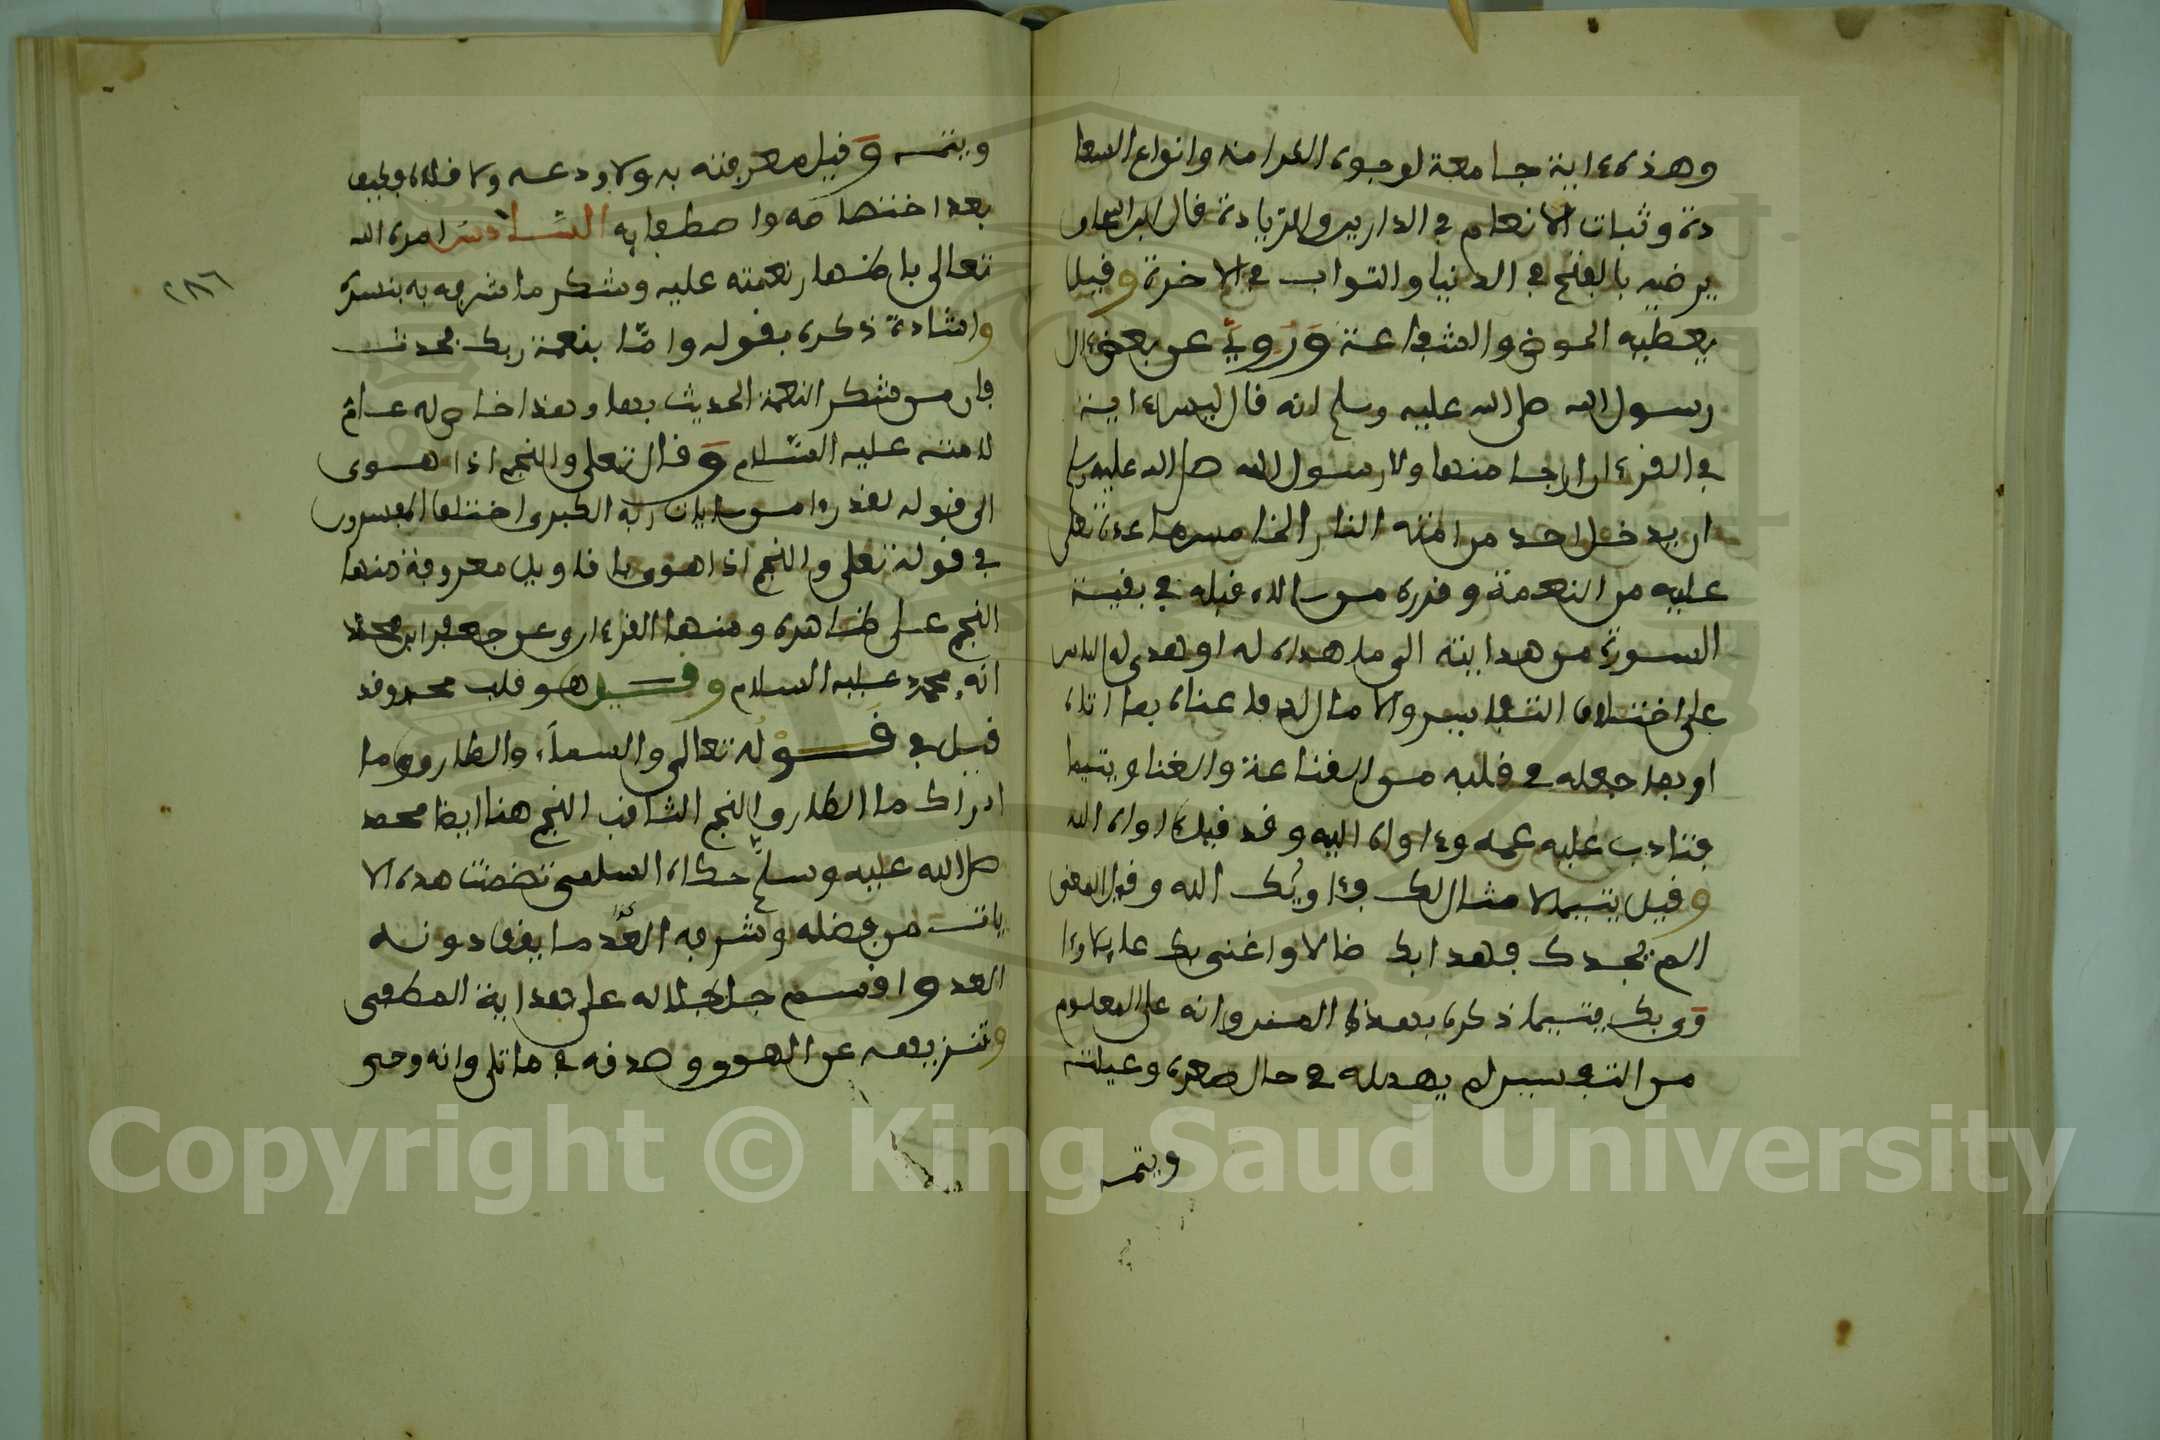 وهذه ءاية جامعة لوجوه الكرامة وانواع السعا
دة وثبات الانعام في الدارين والزيادة قال ابن اسحاق
يرضيه بالفلج في الدنيا والثواب في الاخرة وقيل
يعطيه الحوض والشفاعة وروي عن بعض ءال
رسول الله صلى الله عليه وسلم انه قال ليس ءاية
في القرءان ارجا منها ولا رسول الله صلى الله عليه وسلم
ان يدخل احد من امته النار الخامس ما عده تعلى
عليه من النعمة وقرره من ءالاءه قبله في بقية
السورة من هدايته الى ما هداه له او هدى له الناس
على اختلاف التفاسير ولا مال له فاغناه بما اتاه
او بما جعله في قلبه من القناعة والغنا ويتيما
فتادب عليه عمه وءاواه اليه وقد قيل ءاواه الله
وقيل يتيما لا مثال لك فءاويك اليه وقيل المعنى
الم يجدك فهدا بك ضالا واغنى بك عايلا وءا
وى بك يتيما ذكره بهذه المنن وانه على المعلوم
من التفسير لم يهمله في حال صغره وعيلته
ويتمه
ويتمه وقيل معرفته به ولا ودعه ولا قلاه فكيف
بعد اختصاصه واصطفايه السادس امره الله
تعالى باظهار نعمته عليه وشكر ما شرفه به بنشره
واشادة ذكره بقوله واما بنعمة ربك فحدث
فان من شكر النعمة الحديث بها وهذا خاص له عام
لامته عليه السلام وقال تعلى والنجم اذا هوى
الى قوله لقد رءا من ءايات ربه الكبرى اختلف المفسرون
في قوله تعلى والنجم اذا هوى باقاويل معروفة منها
النجم على ظاهره ومنها القرءان وعن جعفر ابن محمد
انه محمد عليه السلام وقيل هو قلب محمد وقد
قيل في قوله تعالى والسماء والطارق وما
ادراك ما الطارق النجم الثاقب النجم هنا ايضا محمد
صلى الله عليه وسلم حكاه السلمي تضمنت هذه الا
يات من فضله وشرفه العد ما يقف دونه
العد واقسم جل جلاله على هداية المصطفى
وتنزيهه عن الهوى وصدقه في ما تلى وانه وحى
٢٨٦
Copyright © King Saud University